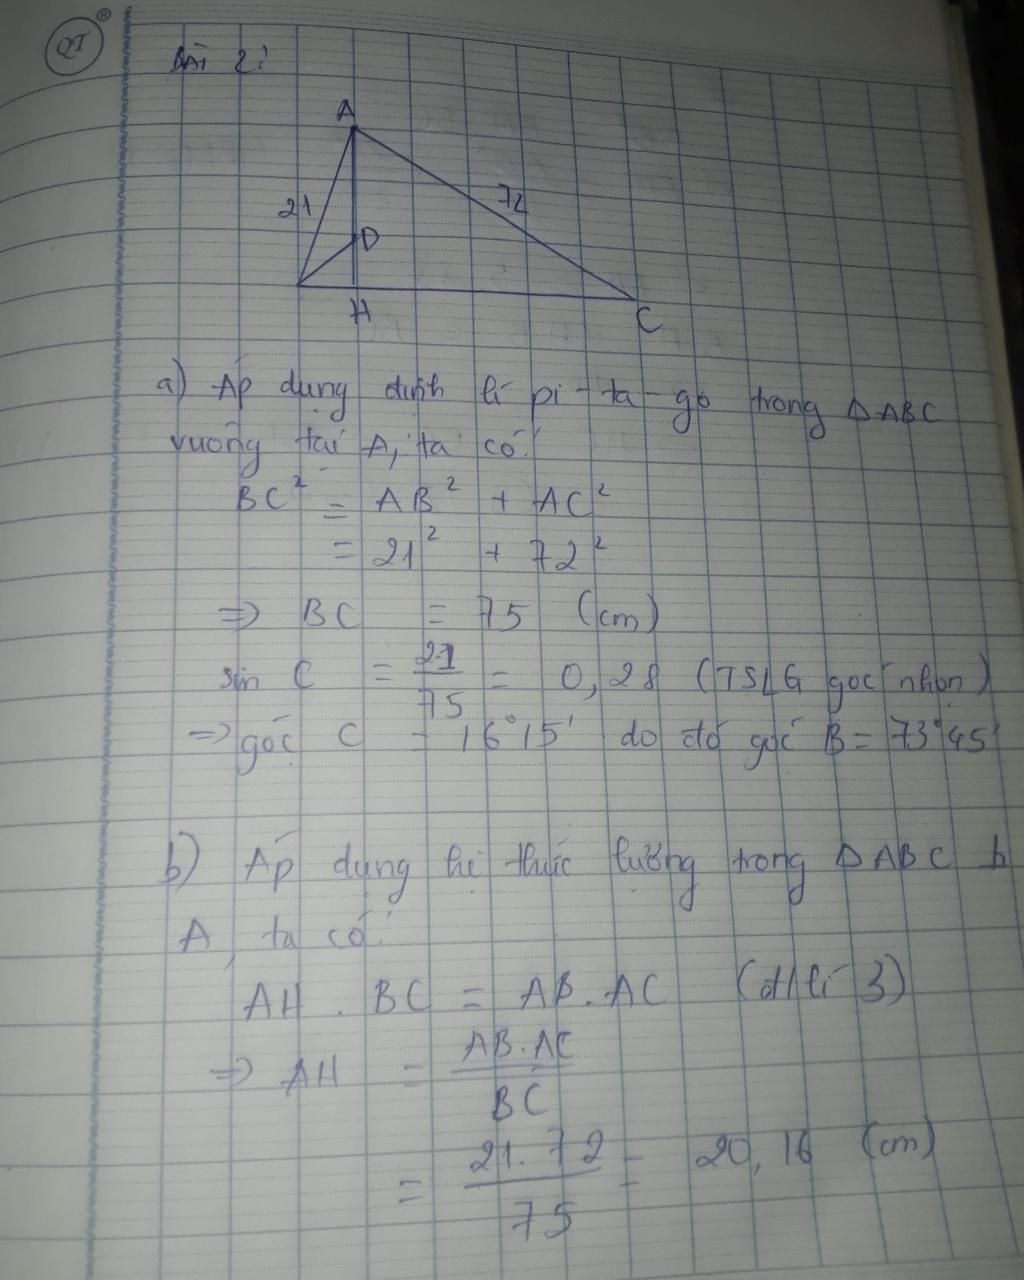 QT
®
Bài 2:
A
21
72
D
H
C
a) Áp dụng định lí pi-ta-go trong ΔABC
vuông tại A, ta có:
BC² = AB² + AC²
= 21² + 72²
=> BC = 75 (cm)
sin C = 21/75 = 0,28 (TSLG góc nhọn)
=> góc C = 16°15' do đó góc B = 73°45'
b) Áp dụng hệ thức lương trong ΔABC
A, ta có:
AH . BC = AB . AC (đ/lí 3)
=> AH = AB.AC/BC
= 21.72/75 = 20,16 (cm)